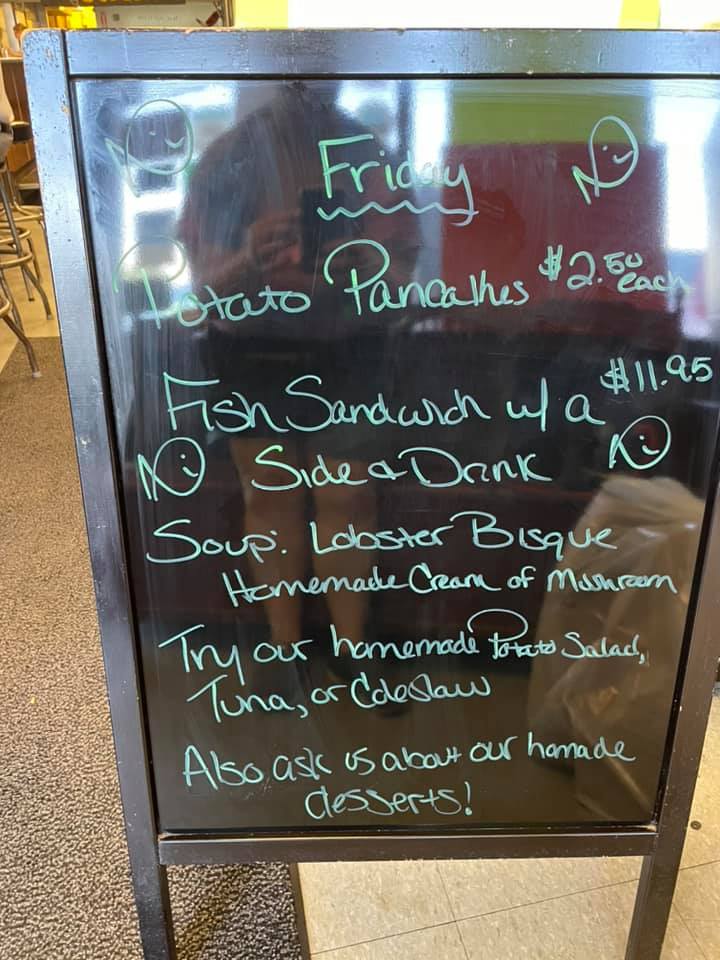 Friday
Potato Pancakes $2.50 each
Fish Sandwich w/ a $11.95
Side & Drink
Soup: Lobster Bisque
Homemade Cream of Mushroom
Try our homemade Potato Salad,
Tuna, or Coleslaw
Also ask us about our homade
desserts!